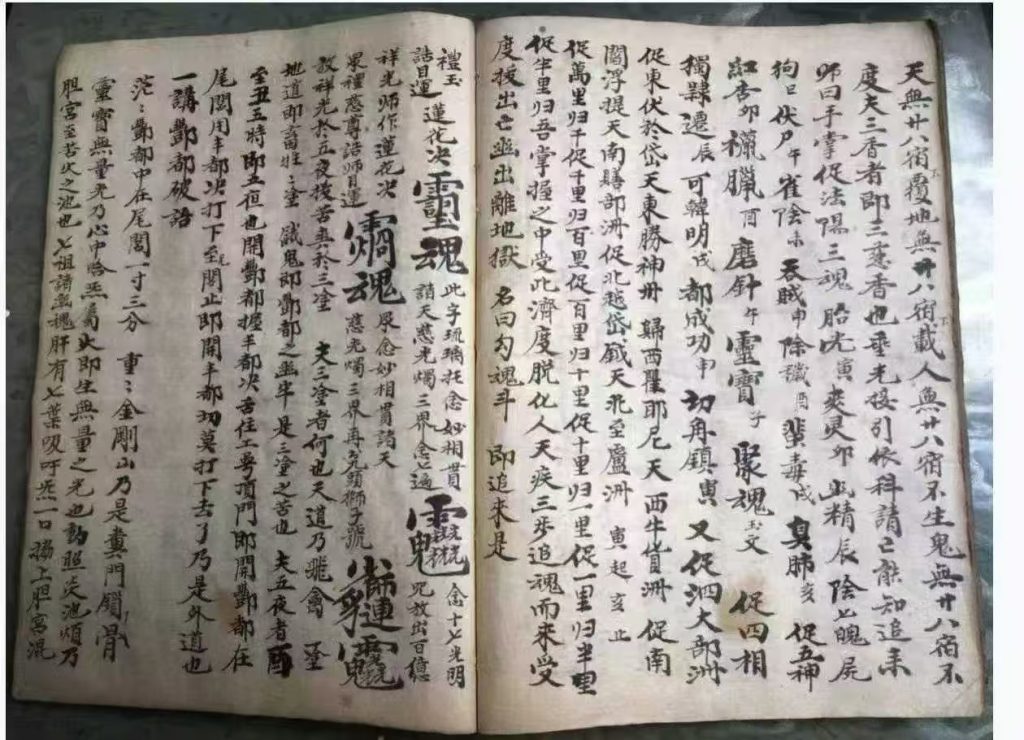 天無廿八宿覆地無廿八宿載人無廿八宿不生鬼無廿八宿不
度夫三香者即三慧香也垂光接引依科請亡能知追来
师曰手掌促法陽三魂胎光寅爽灵卯幽精辰陰七魄尸
狗巳伏尸午雀陰未吞贼申除讖酉蜚毒戌臭肺亥促五神
紅杏卯 酉磨針午靈寶子聚魂玉文促四相
獨隸遷辰可韓明戌都成功申切角鎮寅又促泗大部洲
促東伏於岱天東勝神卅歸西瞿耶尼天西牛貨洲促南
閻浮提天南膳部洲促北越岱戠天北至廬洲寅起亥止
促萬里归千促千里归百里促百里归十里促十里归一里促一里归半里
促半里归吾掌握之中受此濟度脱化人天疾三步追魂而来受
度拔出亡幽出離地獄 名曰勾魂斗 即追来是
禮玉
誥目運 蓮花决 靈魂 此字琉璃托念妙相貫 念十七光明
請天慈光燭三界念七遍 咒放出百億
祥光师作蓮花决 尿念妙相貫諸天
衆禮慈尊誥师目運 魂 慈光燭三界再究頭獅子號
放祥光於五夜拔苦奥於三塗 夫三塗者何也天道乃飛禽
地道即畜牲塗餓鬼即酆都之幽牢是三塗之苦也 夫五夜者酉
至丑五時即五夜也開酆都握丰都决舌住工粤頂門即開酆都在
尾閭用丰都决打下至尾閭止即開丰都切莫打下去了乃是外道也
一講酆都破語
沱：酆都中在尾閭一寸三分 重：金剛山乃是糞門鎖骨
靈寶無量光乃心中 炁屬火即生無量之光也動照炎池煩乃
胆宫至苦火之池也七祖諸幽魂肝有七葉吸吁炁一口搧上胆宫混